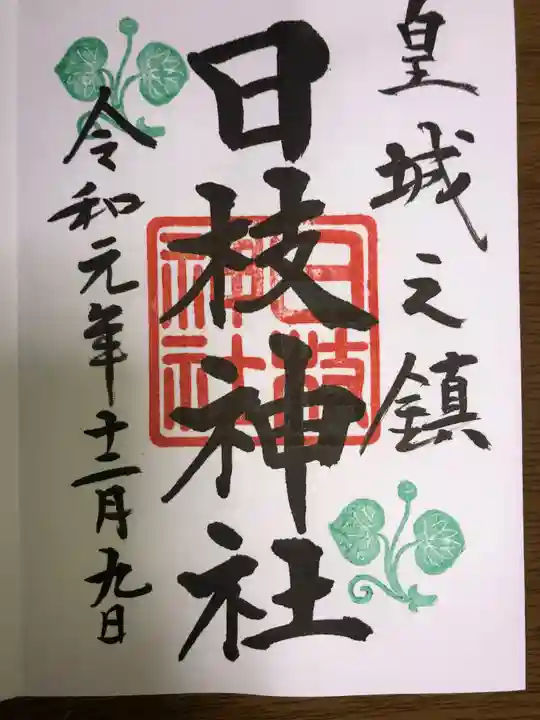 皇城之鎮
日枝神社
日枝
神社
令和元年十二月九日